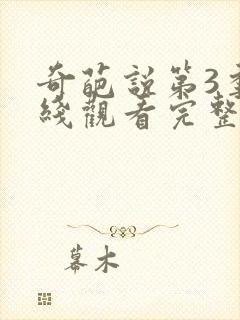 奇葩説第3季
綫觀看完整
幕木